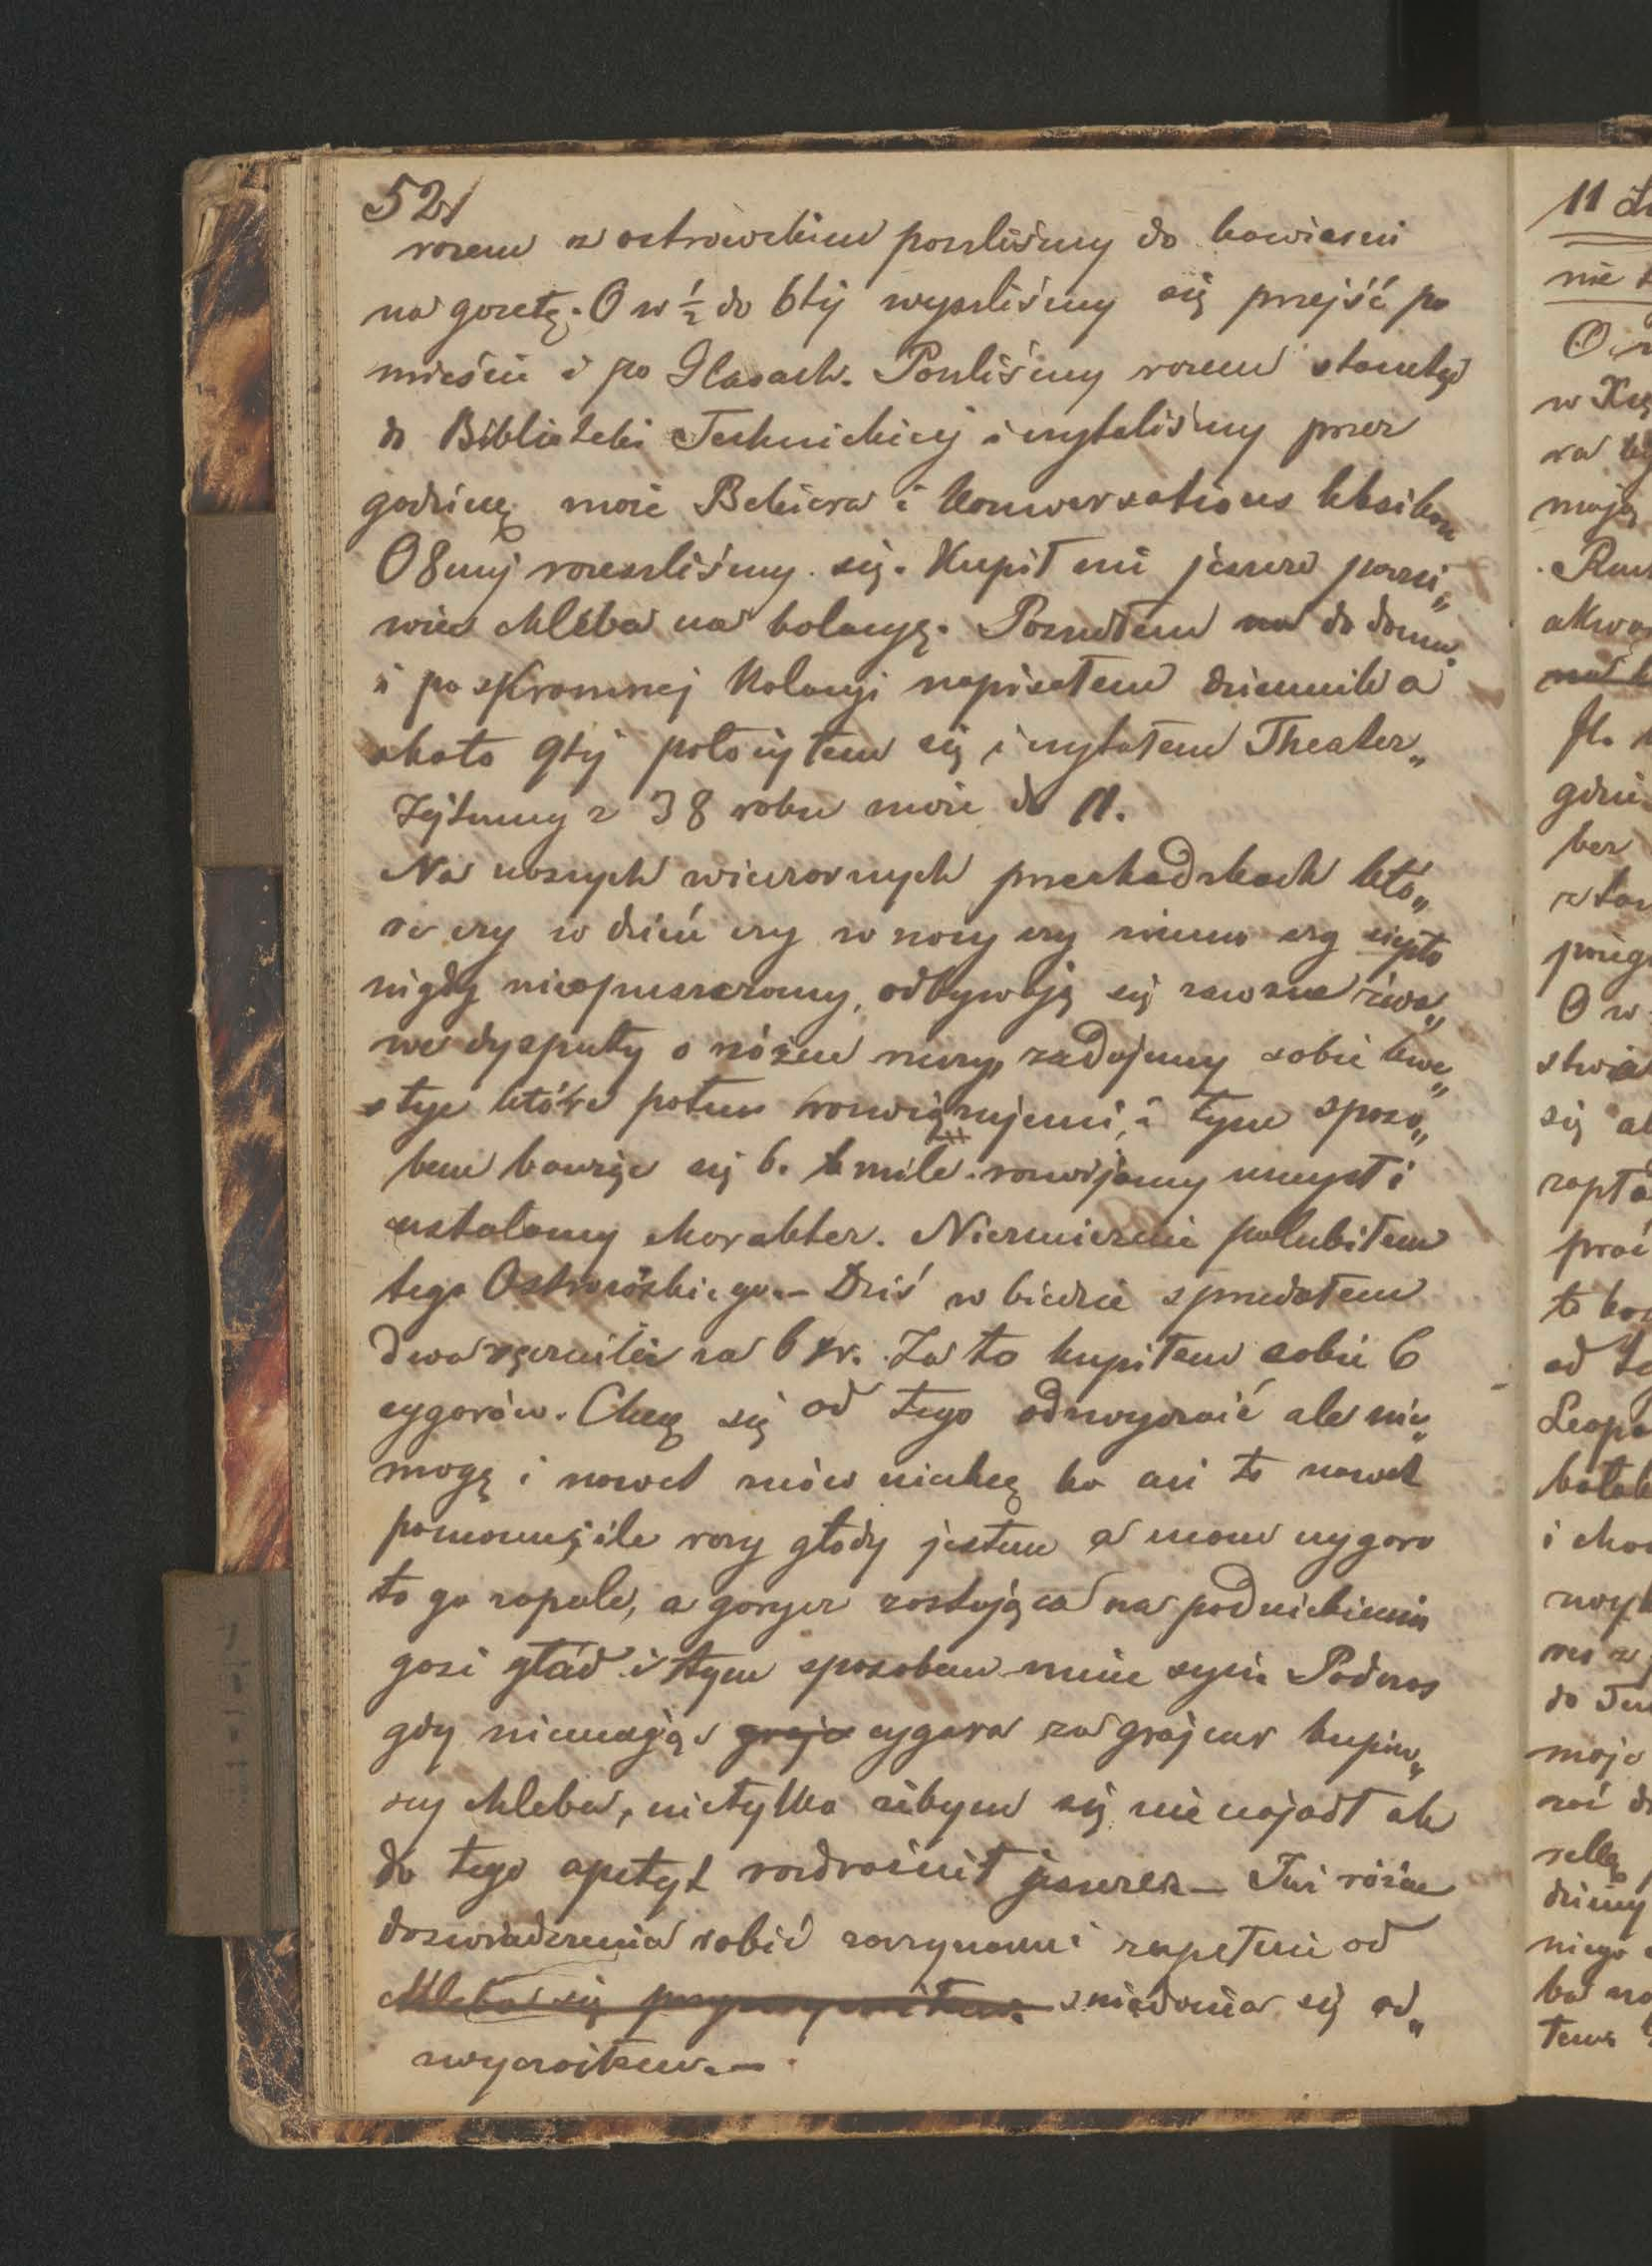 52/
razem z ostrowskim poszliśmy do kawiarni
na gazetę. O w ½ do 6téj wyszliśmy się przejść po
mieście i po Glasach. Poszliśmy razem stamtąd
do Biblioteki Technickiej i czytaliśmy przez
godzinę moie Bekiera i Konwersations leksikon
O 8mej rozeszliśmy się. Kupił mi jeszcze parzi„
wiec chleba na kolacyę. Poszedłem na do domu.
i po skromnej Kolacyi napisałem dziennik a
około 9téj położyłem się i czytałem Theater„
Zeitung z 38 roku moie do 11.
Na naszych wieczornych przechadzkach któ„
re czy w dzień czy w nocy czy zimno czy ciepło
nigdy nieopuszczamy, odbywają się zawsze żwa„
we dysputy o różne rzeczy, zadajemy sobie kwe„
stye które potem rozwięzujemi, i tym sposo„
bem bawiąc się b. mile rozwijamy umysł i
ustalamy charakter. Niezmiernie polubiłem
tego Ostrowskiego. – Dziś w biedzie sprzedałem
dwa ręczniki za 6 xr. Za to kupiłem sobie 6
cygarów. Chcę się od tego odzwyczaić ale nie„
mogę i nawet znów niechcę bo mi to nawet
pomocne, ile razy głody jestem a mam cygaro
to go zapale, a gorycz zostająca na podniebieniu
gasi głód i tym sposobem mnie syci. Podczas
gdy niemając grajc cygara za grajcar kupiw„
szy chleba, nietylko żebym się nie najadł ale
do tego apetyt rozdrażnił jeszcze. – Już różne
doświadczenia robić zaczynam i zupełnie od
chleba się śniadania się od„
zwyczaiłem. –
11
nie
O
w
mają
gdzie
bez
O w
się
to
od
i
do
moje
niego